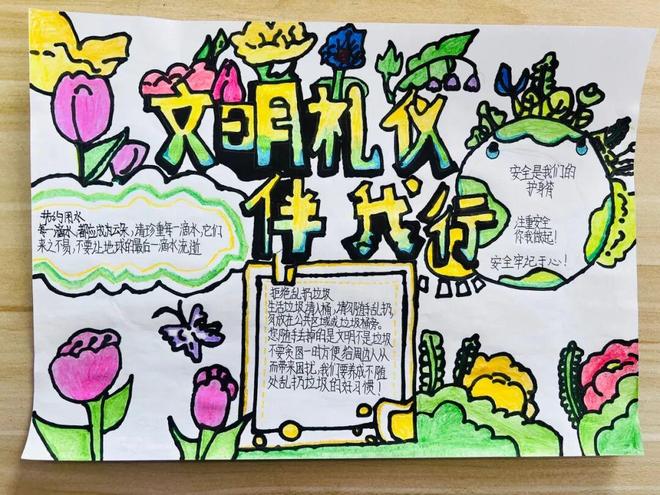 文明礼仪
伴我行
节约用水
每一滴水,都应成为云朵,请珍重每一滴水,它们
来之不易,不要让地球的最后一滴水流逝
安全是我们的
护身符
注重安全
你我做起!
安全牢记于心!
拒绝乱扔垃圾
生活垃圾请入桶,请勿随手乱扔,
勿放在公共区域或垃圾桶旁。
您随手丢掉的是文明不是垃圾
不要贪图一时方便给周边人从
而带来困扰,我们要养成不随
处乱扔垃圾的好习惯!